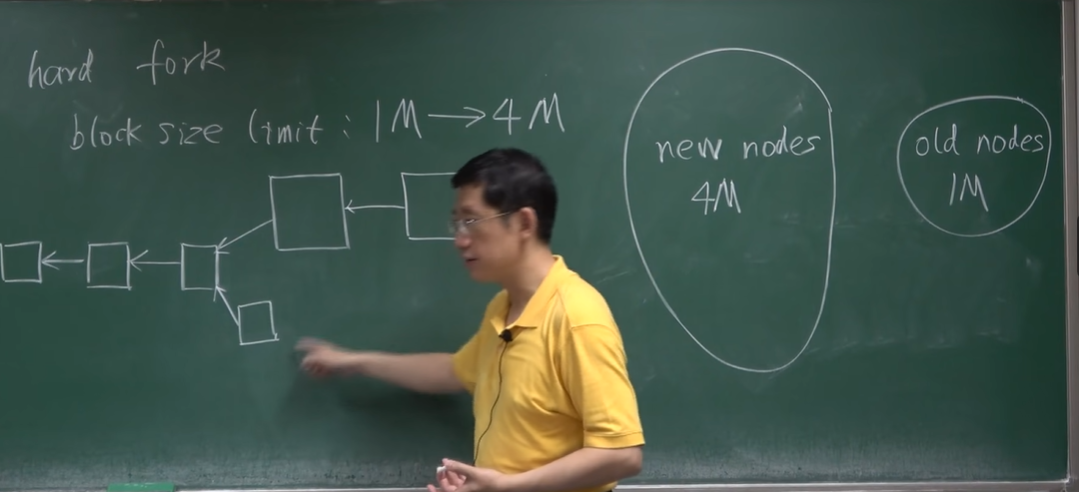 hard fork
block size limit: 1M → 4M
new nodes
4M
old nodes
1M